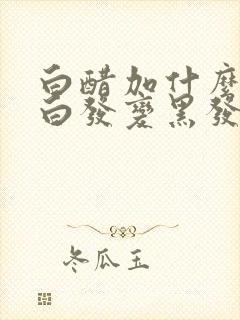 白醋加什麼
白發變黑發
冬瓜玉